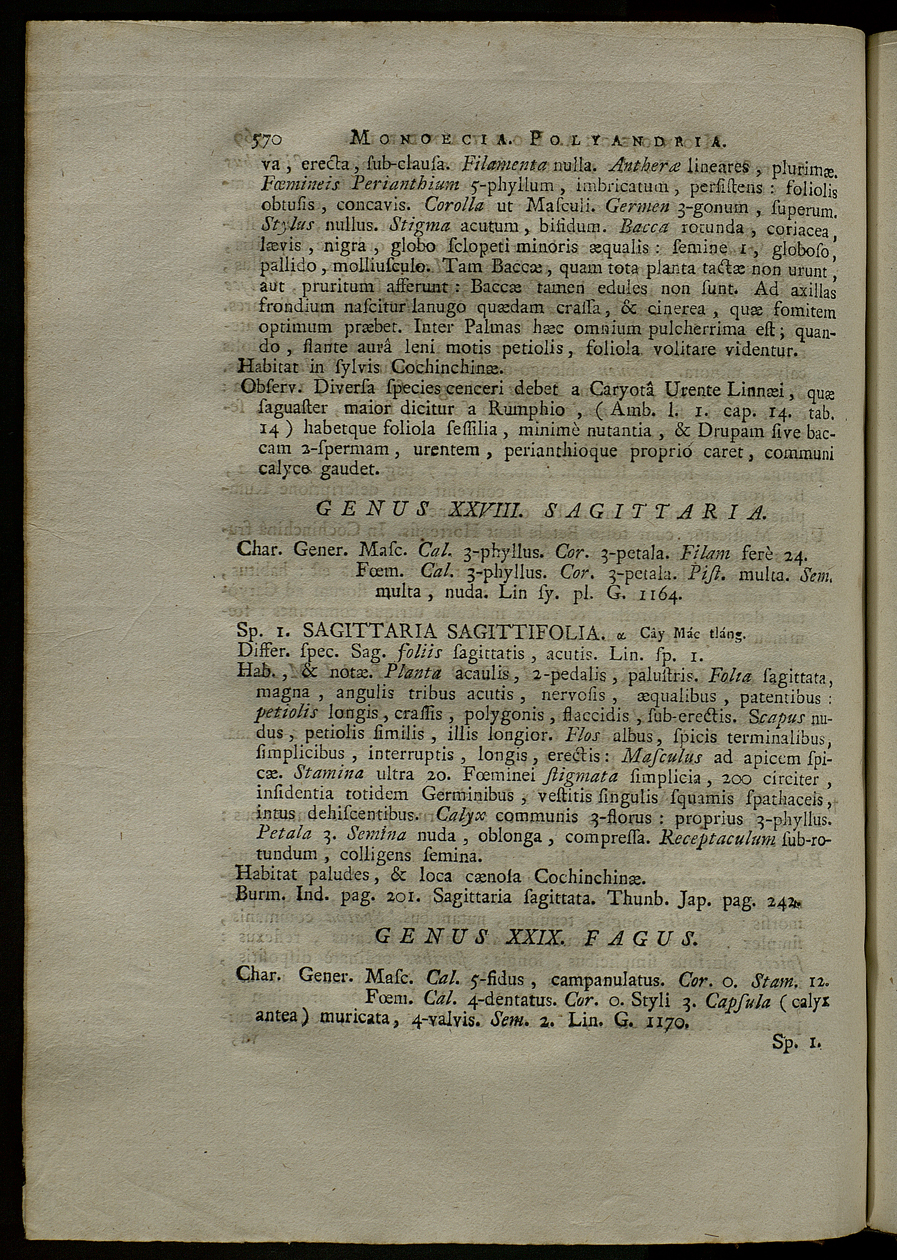 570 MONOECIA. POLYANDRIA.
va, erecta, ſub-clauſa. Filamenta nulla. Antheræ lineares, plurimæ.
Fœmineis Perianthium 5-phyllum, imbricatum, perſiſtens : foliolis
obtuſis, concavis. Corolla ut Maſculi. Germen 3-gonum, ſuperum.
Stylus nullus. Stigma acutum, bifidum. Bacca rotunda, coriacea,
lævis, nigra, globo ſclopeti minoris æqualis : ſemine 1, globoſo,
pallido, molliuſculo. Tam Baccæ, quam tota planta tactæ non urunt,
aut pruritum afferunt : Baccæ tamen edules non ſunt. Ad axillas
frondium naſcitur lanugo quædam craſſa, & cinerea, quæ fomitem
optimum præbet. Inter Palmas hæc omnium pulcherrima eſt; quan-
do, flante aurâ leni motis petiolis, foliola volitare videntur.
Habitat in ſylvis Cochinchinæ.
Obſerv. Diverſa ſpecies cenceri debet a Caryotâ Urente Linnæi, quæ
ſaguaſter maior dicitur a Rumphio, (Amb. l. 1. cap. 14. tab.
14) habetque foliola ſeſſilia, minimè nutantia, & Drupam ſive bac-
cam 2-ſpermam, urentem, perianthioque proprió caret, communi
calyce gaudet.
GENUS XXVIII. SAGITTARIA.
Char. Gener. Maſc. Cal. 3-phyllus. Cor. 3-petala. Filam ferè 24.
Fœm. Cal. 3-phyllus. Cor. 3-petala. Piſt. multa. Sem.
multa, nuda. Lin ſy. pl. G. 1164.
Sp. 1. SAGITTARIA SAGITTIFOLIA. α Cây Mác tláng.
Differ. ſpec. Sag. foliis ſagittatis, acutis. Lin. ſp. 1.
Hab., & notæ. Planta acaulis, 2-pedalis, paluſtris. Folia ſagittata,
magna, angulis tribus acutis, nervoſis, æqualibus, patentibus :
petiolis longis, craſſis, polygonis, flaccidis, ſub-erectis. Scapus nu-
dus, petiolis ſimilis, illis longior. Flos albus, ſpicis terminalibus,
ſimplicibus, interruptis, longis, erectis : Maſculus ad apicem ſpi-
cæ. Stamina ultra 20. Fœminei ſtigmata ſimplicia, 200 circiter,
inſidentia totidem Germinibus, veſtitis ſingulis ſquamis ſpathaceis,
intus dehiſcentibus. Calyx communis 3-florus : proprius 3-phyllus.
Petala 3. Semina nuda, oblonga, compreſſa. Receptaculum ſub-ro-
tundum, colligens ſemina.
Habitat paludes, & loca cænoſa Cochinchinæ.
Burm. Ind. pag. 201. Sagittaria ſagittata. Thunb. Jap. pag. 242.
GENUS XXIX. FAGUS.
Char. Gener. Maſc. Cal. 5-fidus, campanulatus. Cor. 0. Stam. 12.
Fœm. Cal. 4-dentatus. Cor. 0. Styli 3. Capſula (calyx
antea) muricata, 4-valvis. Sem. 2. Lin. G. 1170.
Sp. 1.